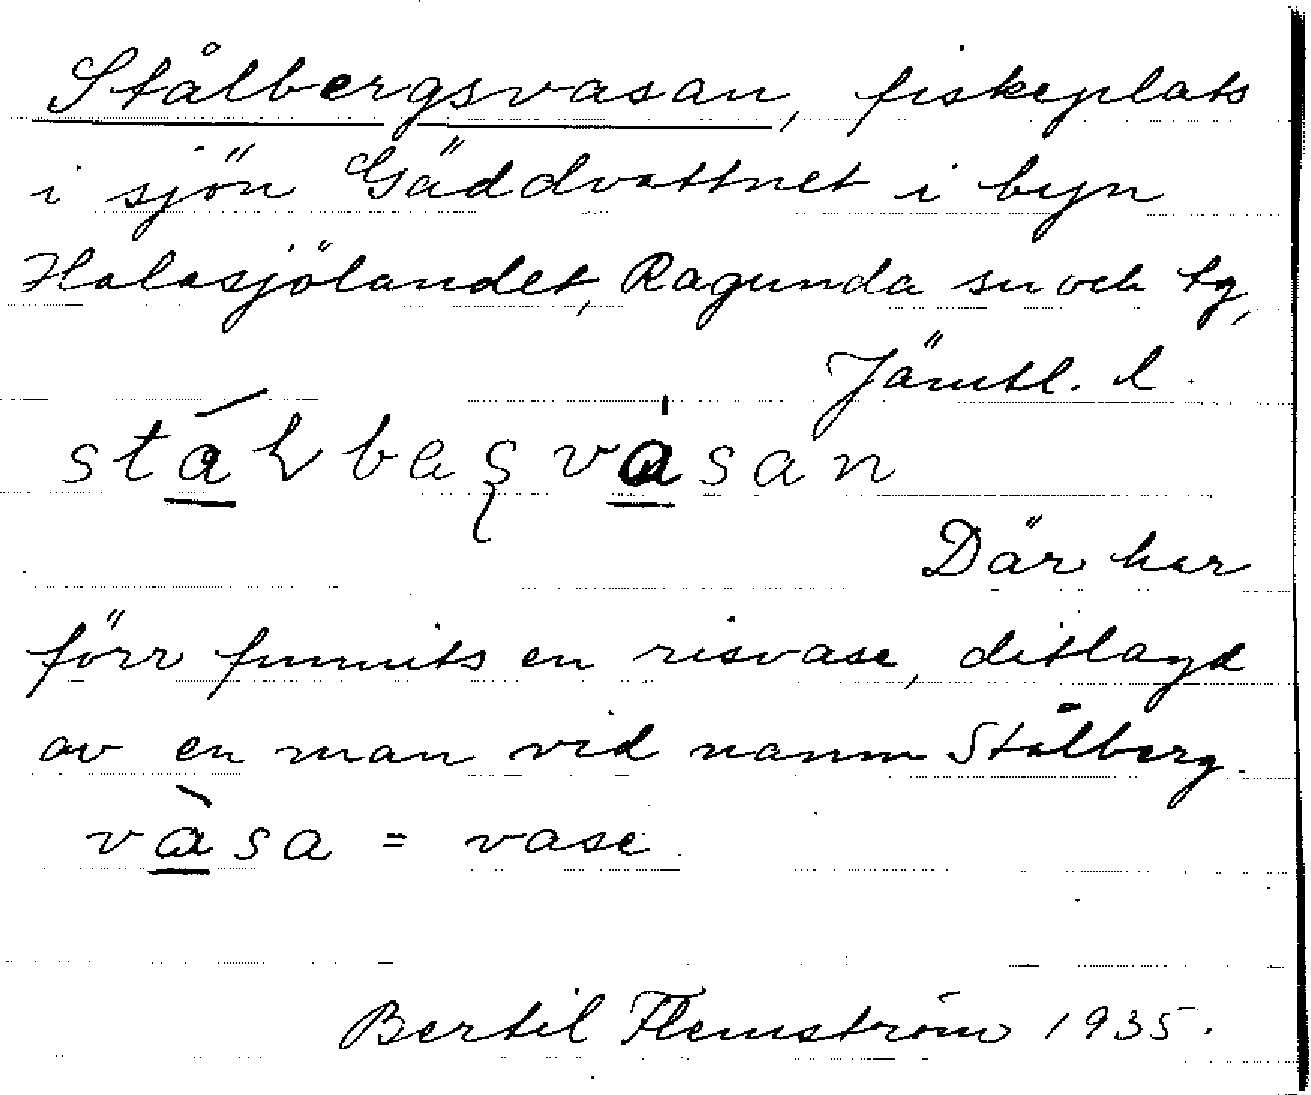 Stålbergsvasan, fiskeplats
i sjön Gäddvattnet i byn
Halasjölandet, Ragunda sn och tg,
Jämtl. l.
Där har
förr funnits en risvase, ditlagd
av en man vid namn Stålberg.
vàsa = vase.
Bertil Flemström 1935.